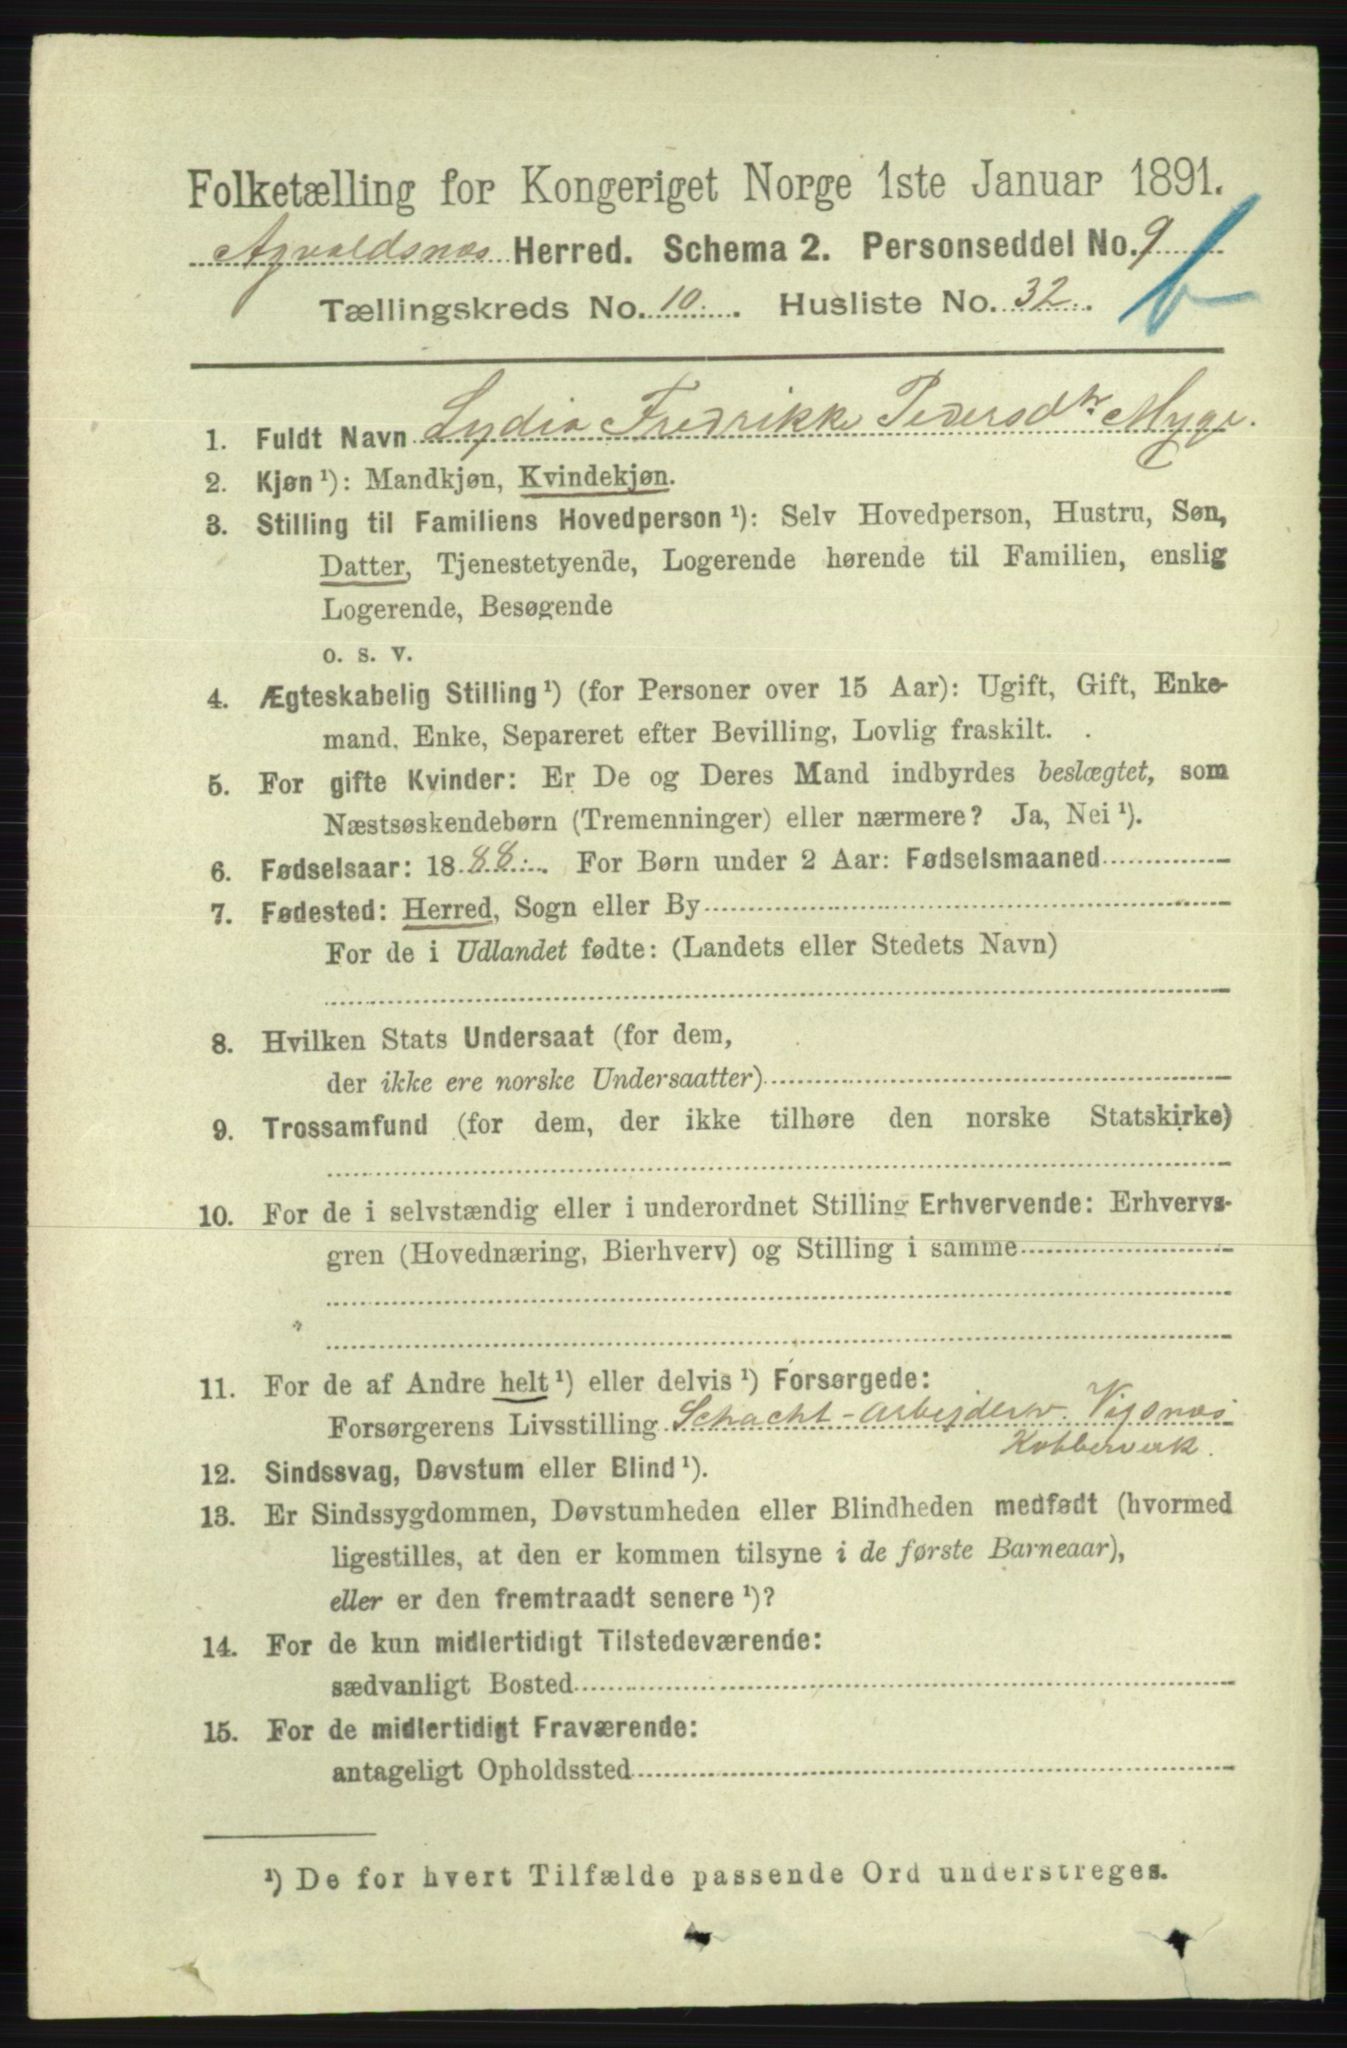 Folketælling for Kongeriget Norge 1ste Januar 1891.
Agvaldsnes Herred. Schema 2. Personseddel No. 9
Tællingskreds No. 10. Husliste No. 32. b
1. Fuldt Navn Lydia Fredrikke Pedersdtr. Myge.
2. Kjøn¹): Mandkjøn, Kvindekjøn.
3. Stilling til Familiens Hovedperson¹): Selv Hovedperson, Hustru, Søn,
Datter, Tjenestetyende, Logerende hørende til Familien, enslig
Logerende, Besøgende
o. s. v.
4. Ægteskabelig Stilling¹) (for Personer over 15 Aar): Ugift, Gift, Enke-
mand, Enke, Separeret efter Bevilling, Lovlig fraskilt.
5. For gifte Kvinder: Er De og Deres Mand indbyrdes beslægtet, som
Næstsøskendebørn (Tremenninger) eller nærmere? Ja, Nei¹).
6. Fødselsaar: 1888. For Børn under 2 Aar: Fødselsmaaned
7. Fødested: Herred, Sogn eller By
For de i Udlandet fødte: (Landets eller Stedets Navn)
8. Hvilken Stats Undersaat (for dem,
der ikke ere norske Undersaatter)
9. Trossamfund (for dem, der ikke tilhøre den norske Statskirke)
10. For de i selvstændig eller i underordnet Stilling Erhvervende: Erhvervs-
gren (Hovednæring, Bierhverv) og Stilling i samme
11. For de af Andre helt¹) eller delvis¹) Forsørgede:
Forsørgerens Livsstilling Schacht-arbejder v. Vigsnes
Kobberverk.
12. Sindssvag, Døvstum eller Blind¹).
13. Er Sindssygdommen, Døvstumheden eller Blindheden medfødt (hvormed
ligestilles, at den er kommen tilsyne i de første Barneaar),
eller er den fremtraadt senere¹)?
14. For de kun midlertidigt Tilstedeværende:
sædvanligt Bosted
15. For de midlertidigt Fraværende:
antageligt Opholdssted
¹) De for hvert Tilfælde passende Ord understreges.